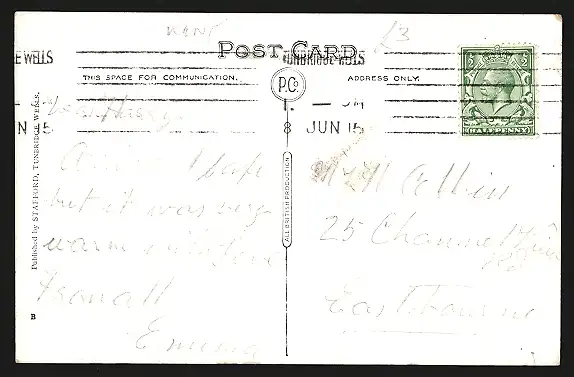 KENT
£3
POST CARD.
THIS SPACE FOR COMMUNICATION.
ADDRESS ONLY.
P.C.
E WELLS
TUNBRIDGE WELLS
1 – PM
8 JUN 15
N 15
HALFPENNY
ALL BRITISH PRODUCTION
Published by STAFFORD, TUNBRIDGE WELLS.
B
Dear Harry
safe
but it was very
warm with love
from all
Emma
Mr H Collin
25 Channel View
Rd
Eastbourne